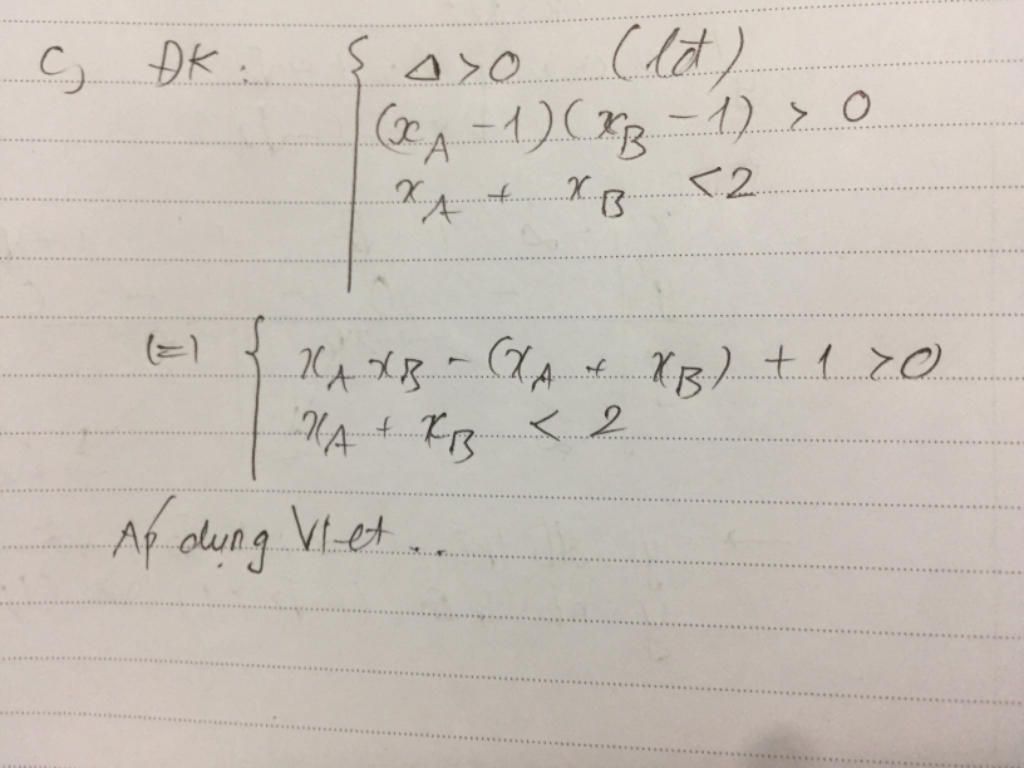 c) ĐK: { Δ > 0 (lđ)
(x_A - 1)(x_B - 1) > 0
x_A + x_B < 2
(=) { x_A x_B - (x_A + x_B) + 1 > 0
x_A + x_B < 2
Áp dụng Viet..